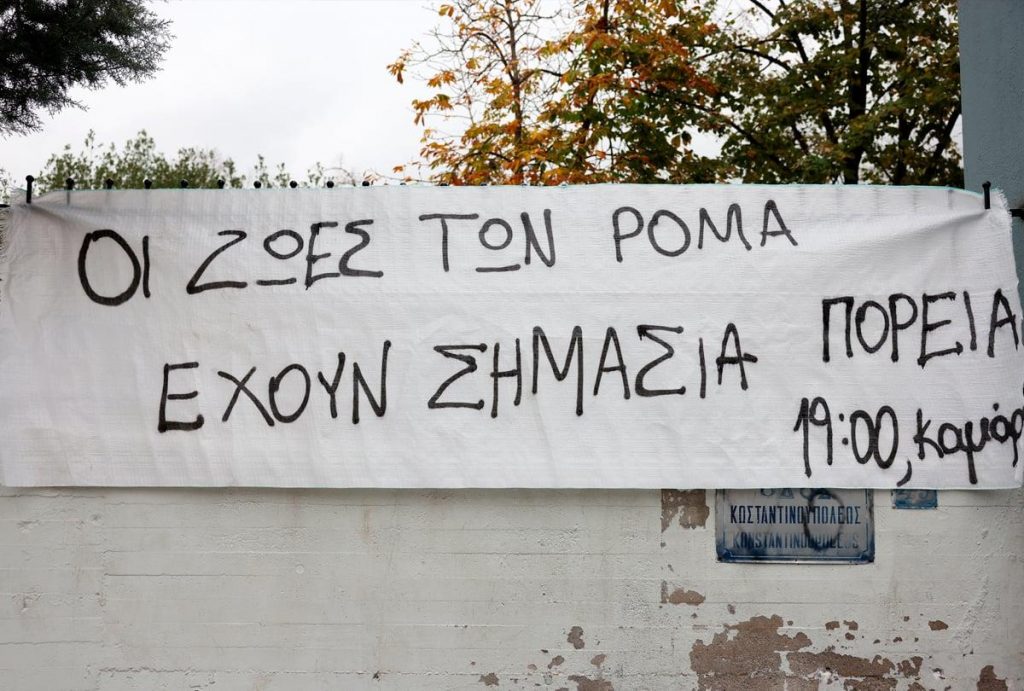 ΟΙ ΖΩΕΣ ΤΩΝ ΡΟΜΑ
ΕΧΟΥΝ ΣΗΜΑΣΙΑ
ΠΟΡΕΙΑ
19:00, Καμάρ
ΚΩΣΤΑΝΤΙΝΟΥΠΟΛΕΩΣ
KONSTANTINOUPOLEOS